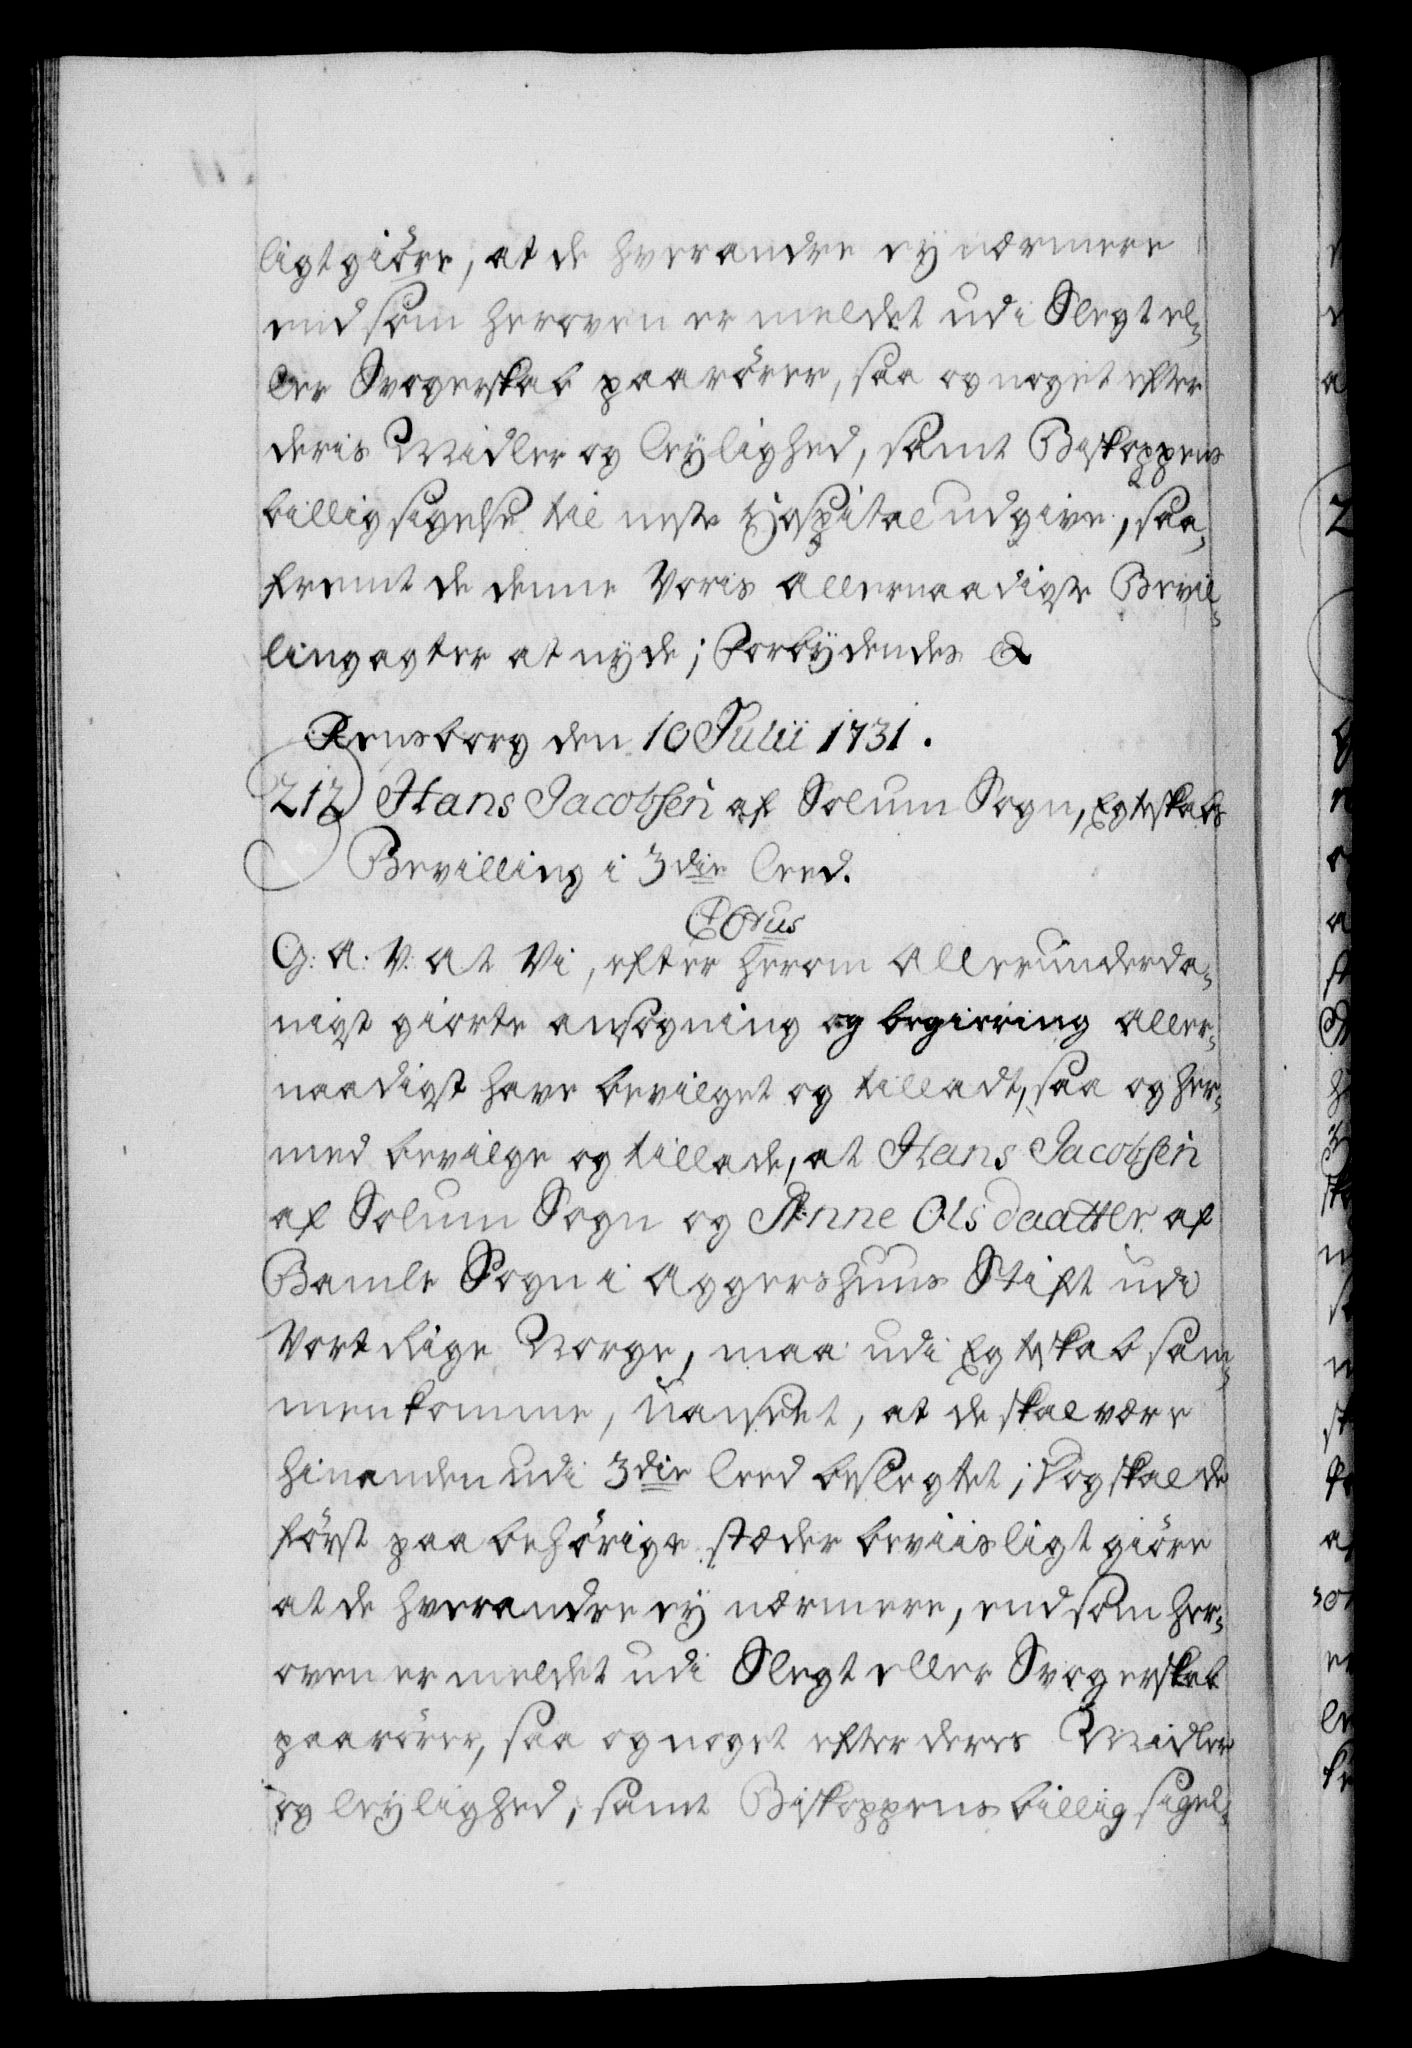 ligt giöre, at de hverandre ey nærmere
end som heroven er meldet udi Slegt el-
ler Svogerskab paarörer, saa og noget efter
deris Midler og leylighed, samt Biskoppens
billigsigelse til neste Hospital udgive, saa-
fremt de denne Voris allernaadigste Bevil-
ling agter at nyde; Forbydendes &
Rensborg den 10 Julii 1731.
212 Hans Jacobsen af Solum Sogn, Egteskabs
Bevilling i 3die leed.
C6tus
G: A. V. at Vi, efter herom allerunderda-
nigst giorte ansögning og begiering aller-
naadigst have bevilget og tilladt, saa og her-
med bevilge og tillade, at Hans Jacobsen
af Solum Sogn og Anne Olsdaatter af
Bamle Sogn i Aggershuus Stift udi
Vort Rige Norge, maa udi Egteskab sam-
menkomme, uanseet, at de skal være
hinanden udi 3die leed beslegtet; Dog skal de
först paa behörige stæder beviisligt giöre
at de hverandre ey nærmere, end som her-
oven er meldet udi Slegt eller Svogerskab
paarörer, saa og noget efter deres Midler
og leylighed, samt Biskoppens billig sigel-